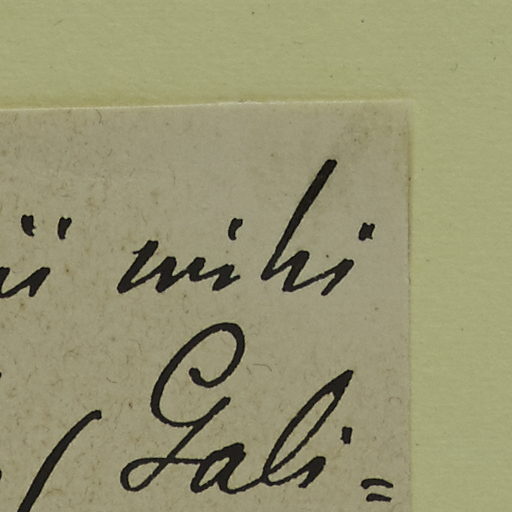 ii mihi
( Gali=